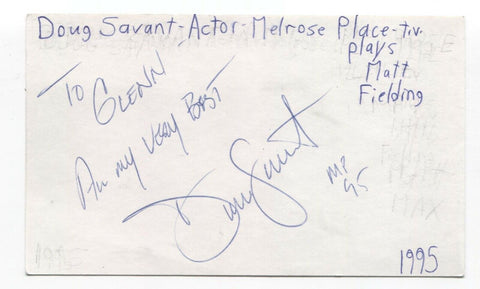 Doug Savant-Actor-Melrose Place-t.v.
plays
Matt
Fielding
TO GLENN
All my VERY BEST
Doug Savant
MP
95
1995